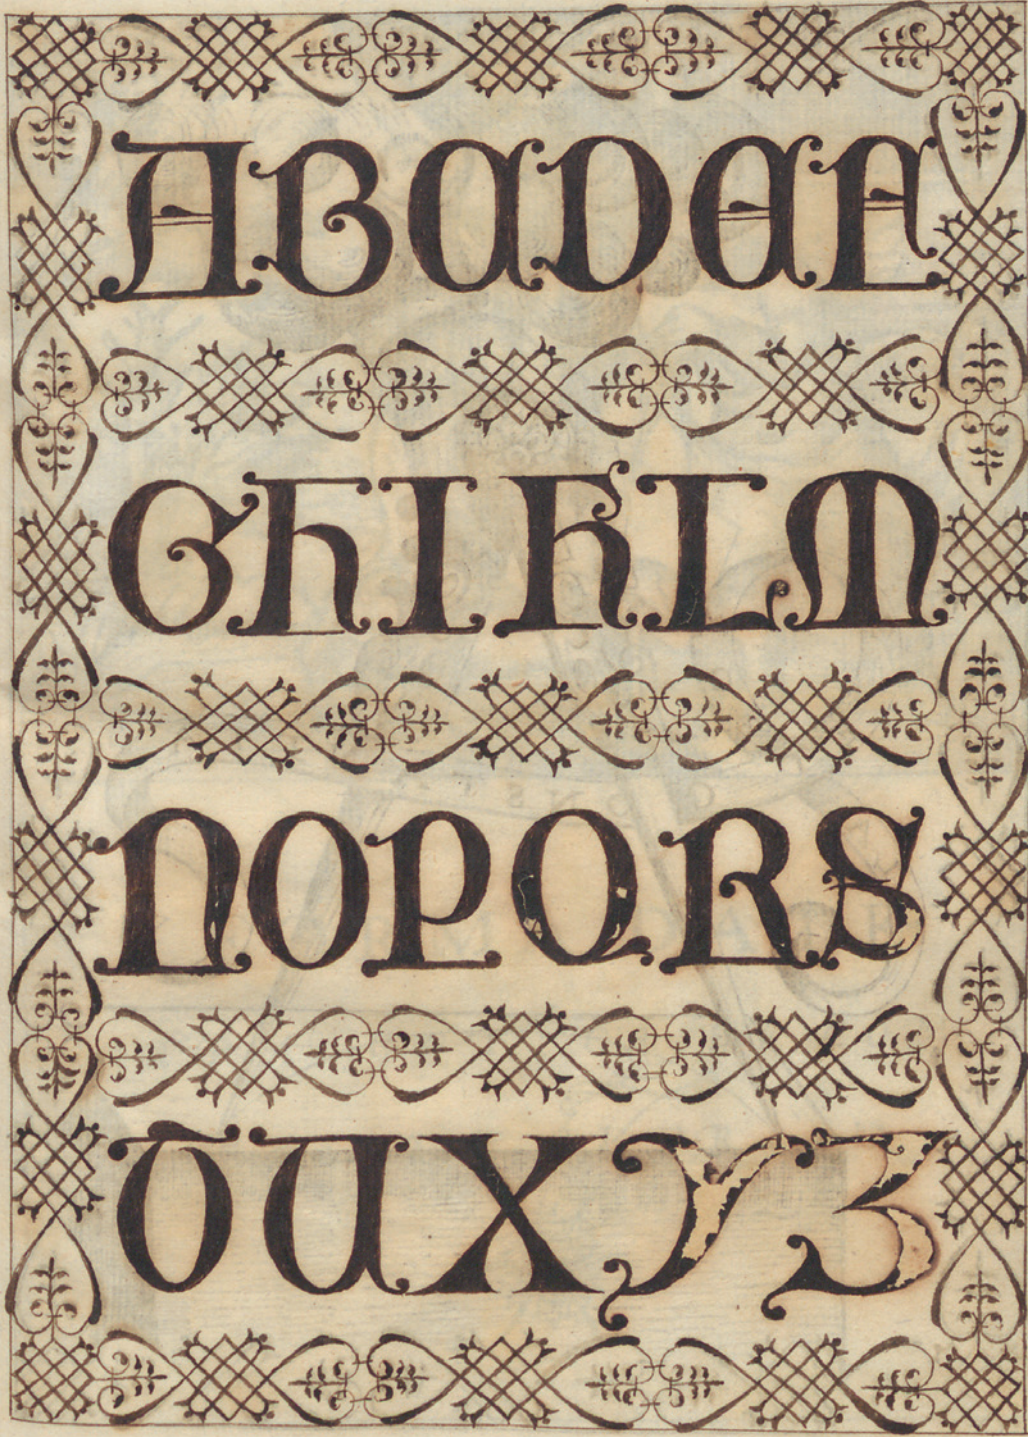 ABCDEF
GHIKLM
NOPQRS
TUXYZ